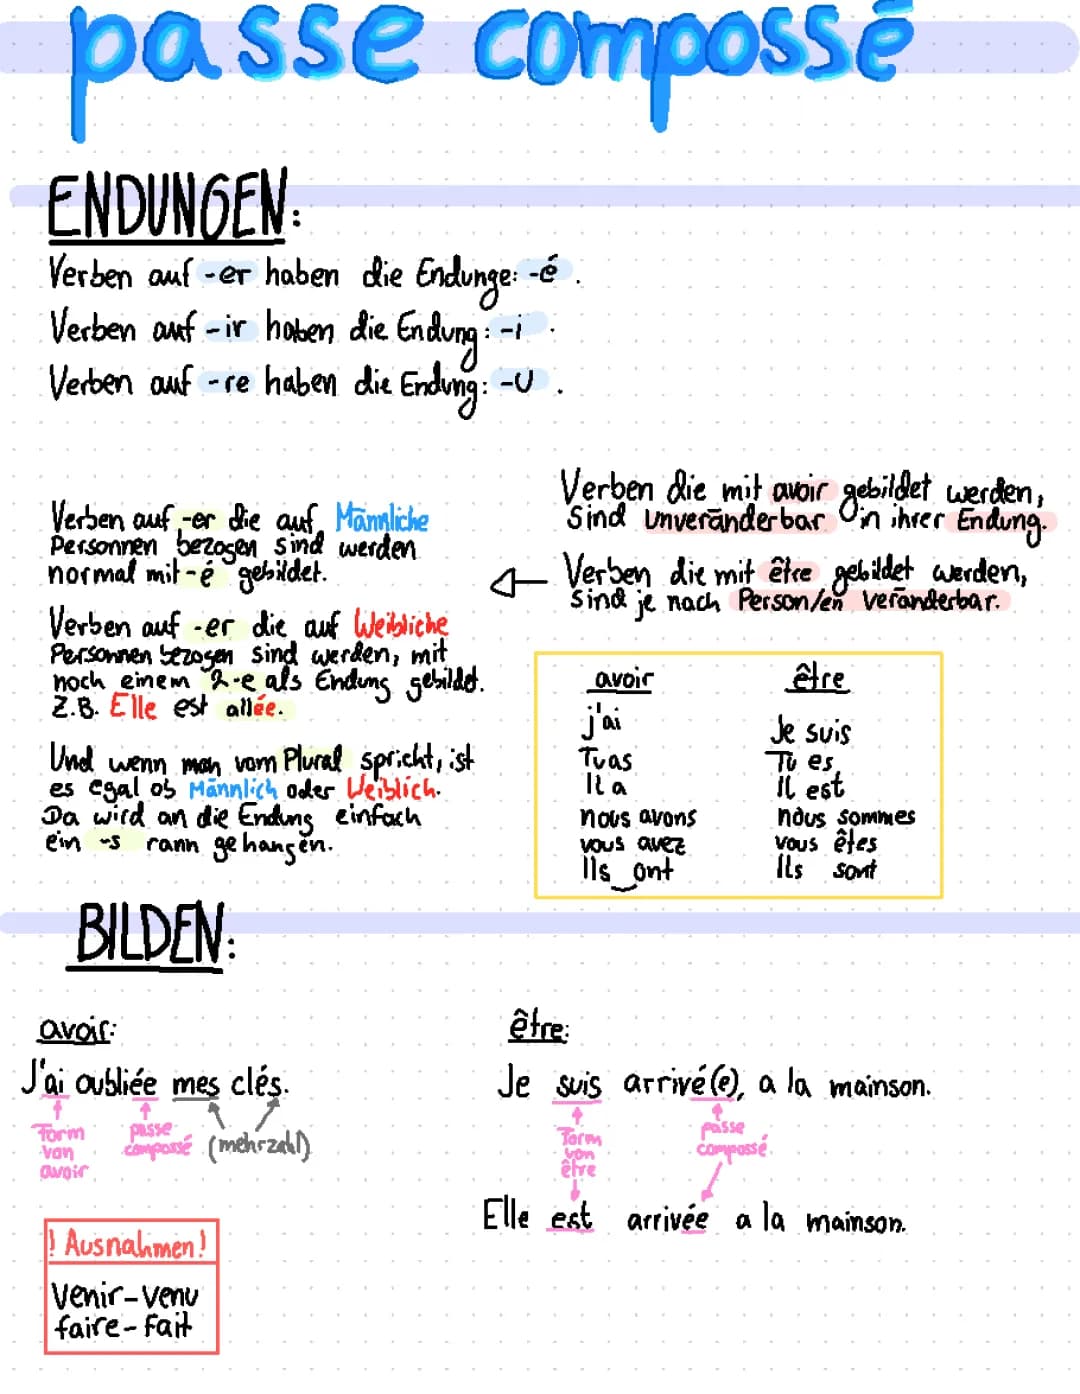 passe compossé
ENDUNGEN:
Verben auf -er haben die Endunge: -é.
Verben auf -ir haben die Endung: -i.
Verben auf -re haben die Endung: -u.
Verben die mit avoir gebildet werden,
sind Unveränderbar in ihrer Endung.
Verben die mit être gebildet werden,
sind je nach Person/en veränderbar.
Verben auf -er die auf Männliche
Personnen bezogen sind werden
normal mit -é gebildet.
Verben auf -er die auf Weibliche
Personnen bezogen sind werden, mit
noch einem 2-e als Endung gebildet.
Z.B. Elle est allée.
Und wenn man vom Plural spricht, ist
es egal ob Männlich oder Weiblich.
Da wird an die Endung einfach
ein -s rann gehangen.
avoir être
j'ai Je suis
Tu as Tu es
Il a Il est
nous avons nous sommes
vous avez vous êtes
Ils ont Ils sont
BILDEN:
avoir:
J'ai oubliée mes clés.
Form
von
avoir
passe
compossé
(mehrzahl)
être:
Je suis arrivé(e), a la mainson.
Form
von
être
passe
compossé
Elle est arrivée a la mainson.
! Ausnahmen!
Venir-venu
faire-fait